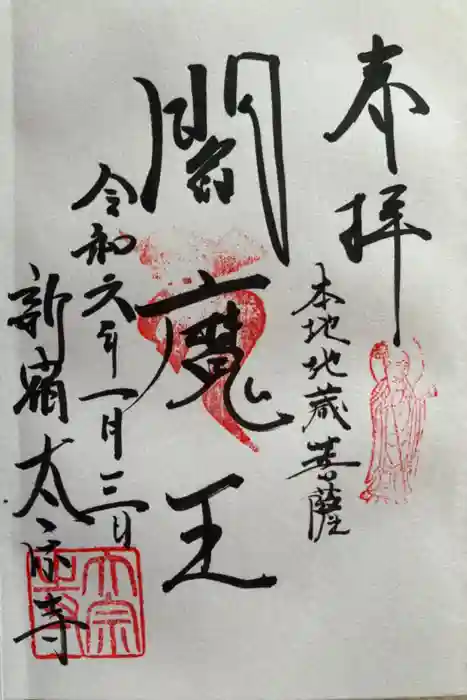 奉拝
本地地蔵菩薩
閻魔王
令和六年一月三日
新宿太宗寺
太宗
寺印